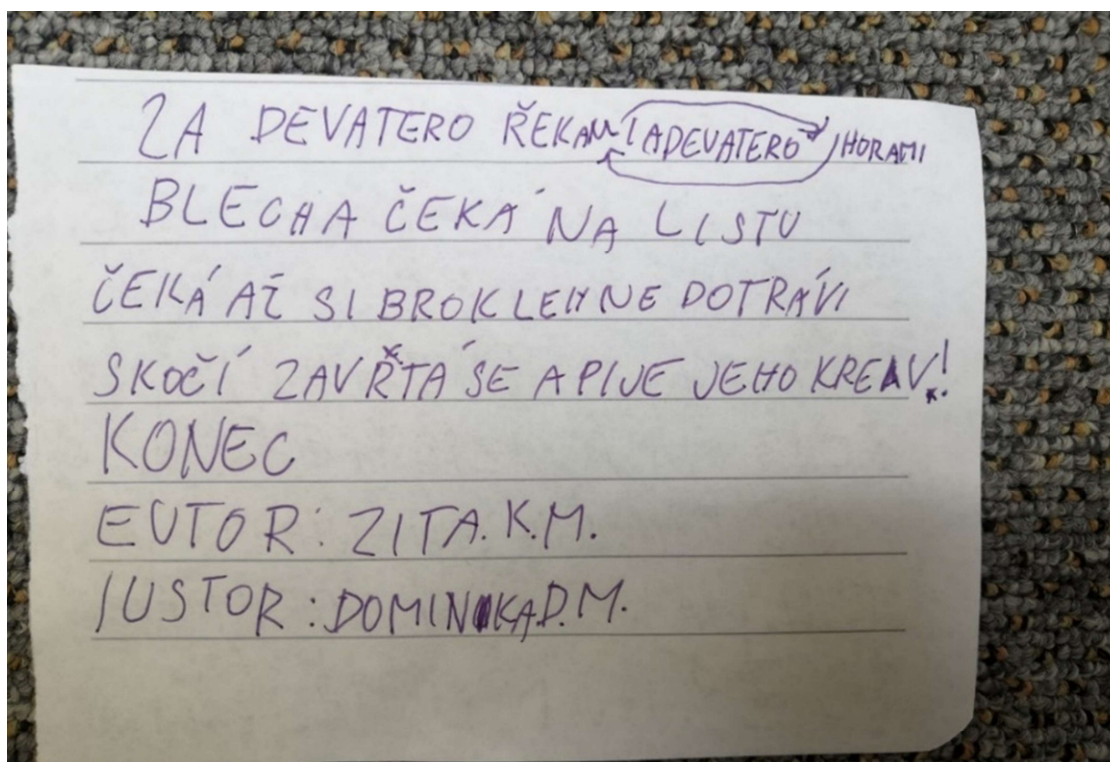 ZA DEVATERO ŘEKAMI A DEVATERO HORAMI
BLECHA ČEKÁ NA LISTU
ČEKÁ AŽ SI BROK LEHNE DOTRÁVI
SKOČÍ ZAVŘTÁ SE A PIJE JEHO KREAV!
KONEC
EUTOR: ZITA.K.M.
IUSTOR: DOMINIKA.D.M.